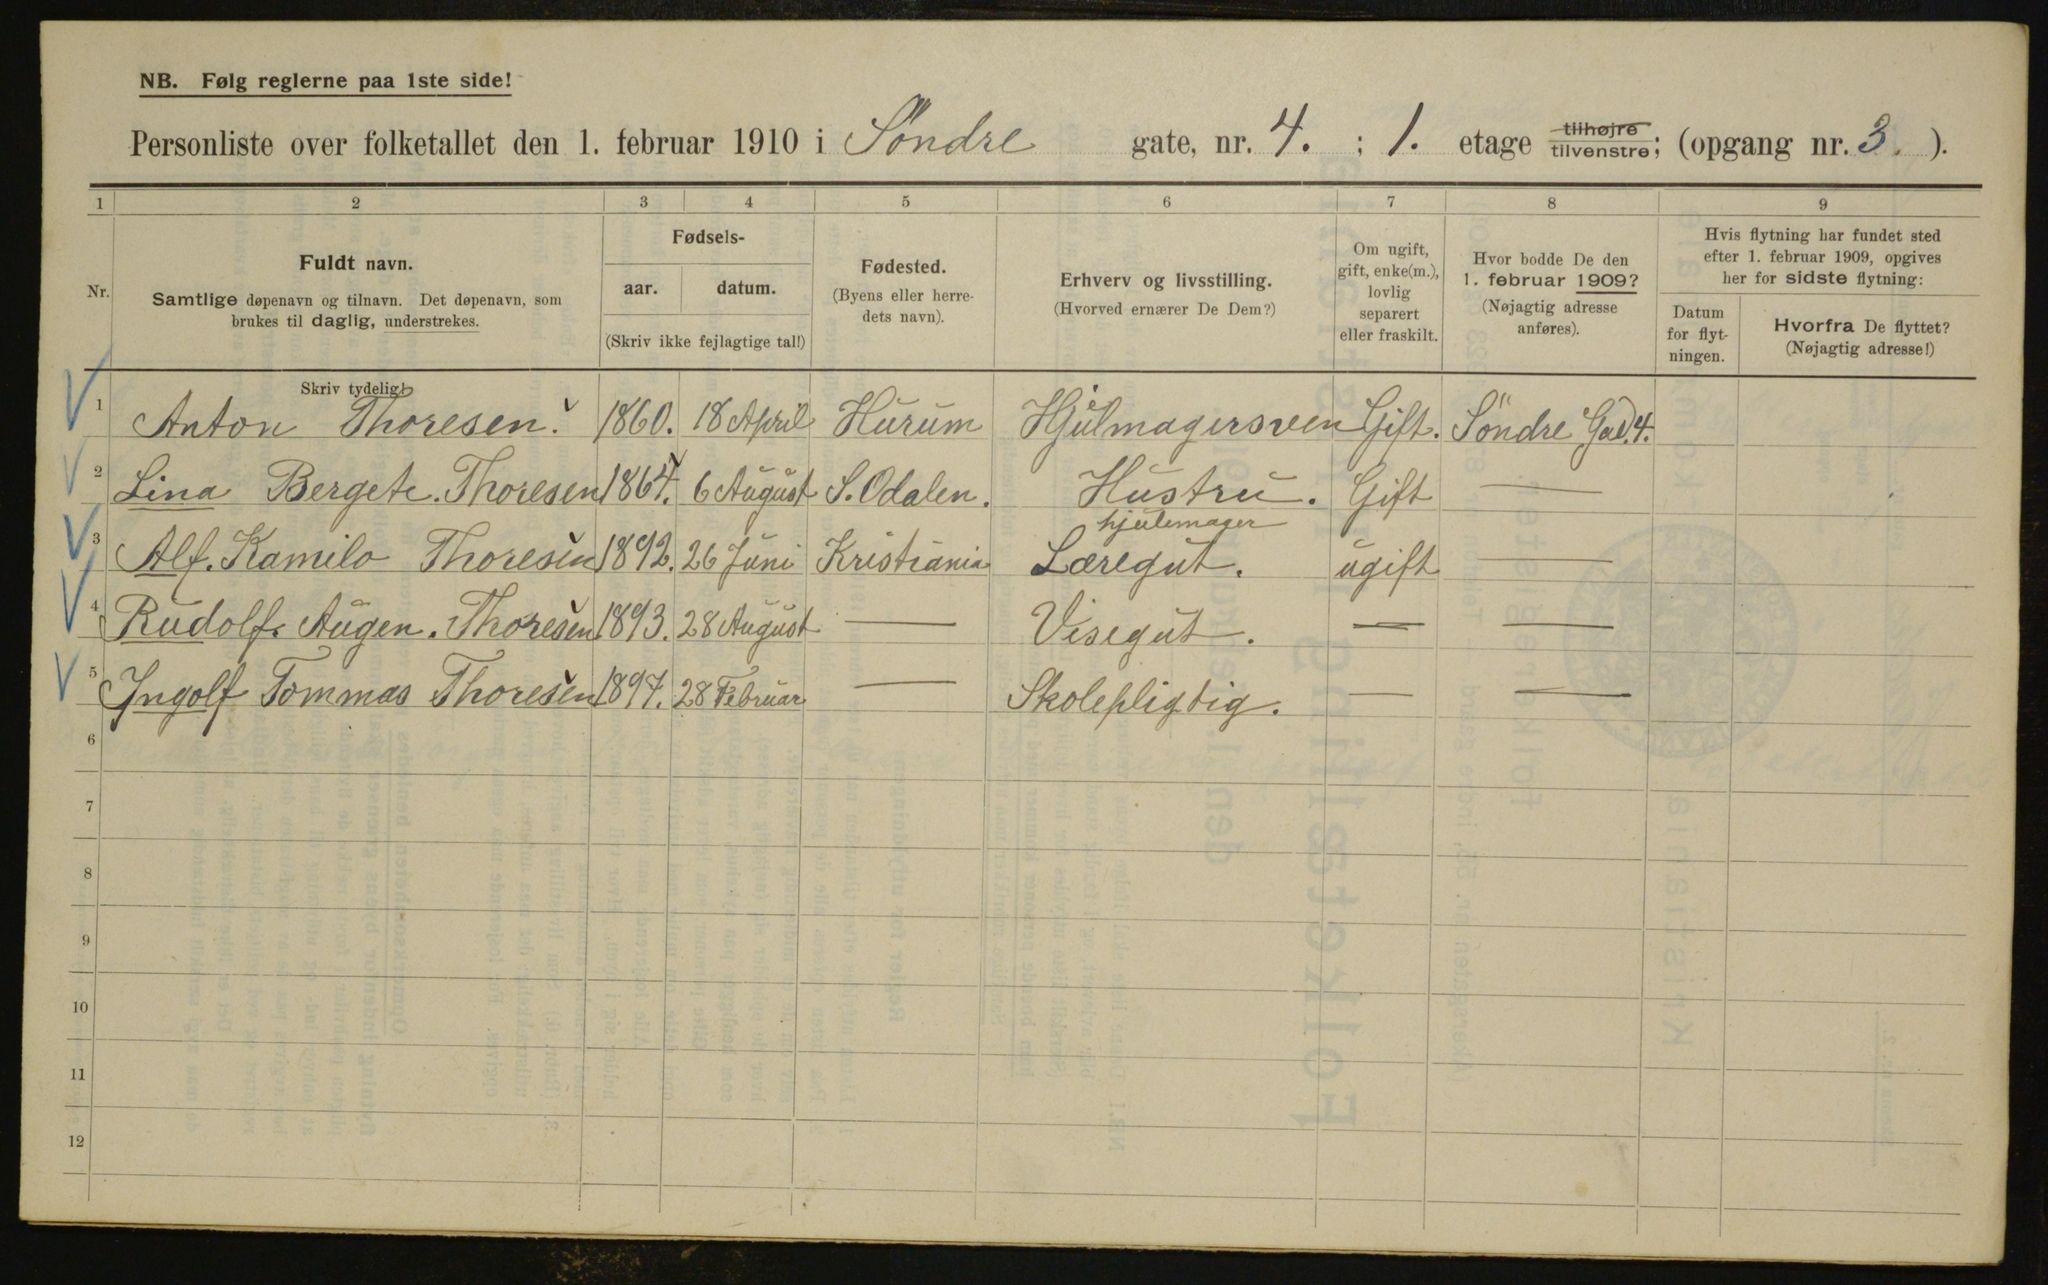 NB. Følg reglerne paa 1ste side!
Personliste over folketallet den 1. februar 1910 i Söndre gate, nr. 4. ; 1. etage tilhøjre tilvenstre; (opgang nr. 3. ).
1 2 3 4 5 6 7 8 9
Nr.
Fuldt navn.
Samtlige døpenavn og tilnavn. Det døpenavn, som
brukes til daglig, understrekes.
Fødsels-
aar. datum.
(Skriv ikke fejlagtige tal!)
Fødested.
(Byens eller herre-
dets navn).
Erhverv og livsstilling.
(Hvorved ernærer De Dem?)
Om ugift,
gift, enke(m.),
lovlig
separert
eller fraskilt.
Hvor bodde De den
1. februar 1909?
(Nøjagtig adresse
anføres).
Hvis flytning har fundet sted
efter 1. februar 1909, opgives
her for sidste flytning:
Datum
for flyt-
ningen.
Hvorfra De flyttet?
(Nøjagtig adresse!)
Skriv tydelig!
1 Anton Thoresen. 1860. 18 April Hurum Hjulmagersven Gift. Söndre Gad. 4.
2 Lina Bergete. Thoresen 1864. 6 August S. Odalen. Hustru. Gift —
hjulemager
3 Alf. Kamilo Thoresen 1892. 26 Juni Kristiania Læregut. ugift —
4 Rudolf. Augen. Thoresen 1893. 28 August — Visegut. — —
5 Ingolf Tommas Thoresen 1897. 28 Februar — Skolepligtig. — —
6
7
8
9
10
11
12